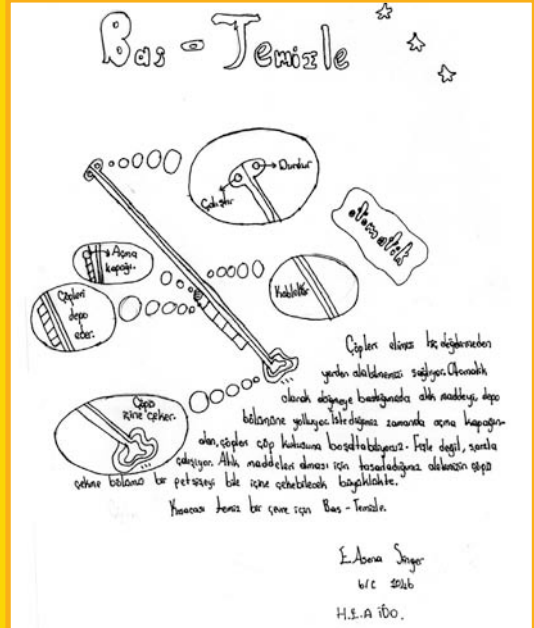 Bas - Temizle
Durdur
Çalıştır
otomatik
Açma
kapağı.
Kablolar
Çöpleri
depo
eder.
Çöpü
içine çeker.
Çöpleri elimiz hiç değmeden
yerden alabilmemizi sağlıyor. Otomatik
olarak düğmeye bastığınızda atık maddeyi, depo
bölümüne yolluyor. İstediğimiz zamanda açma kapağın-
dan, çöpleri çöp kutusuna boşaltabiliyoruz. Fişle değil, şarzla
çalışıyor. Atık maddeleri alması için tasarladığımız aletimizin çöpü
çekme bölümü bir petşişeyi bile içine çekebilecek büyüklükte.
Kısacası temiz bir çevre için Bas - Temizle.
E. Asena
6/C 1046
H.E.A İÖO.